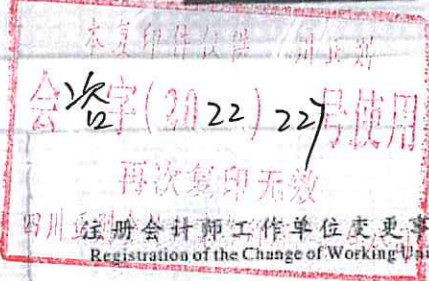 本复印件仅供 川正则
会咨字(2022)227号使用
再次复印无效
四川
注册会计师工作单位变更事
Registration of the Change of Working Uni